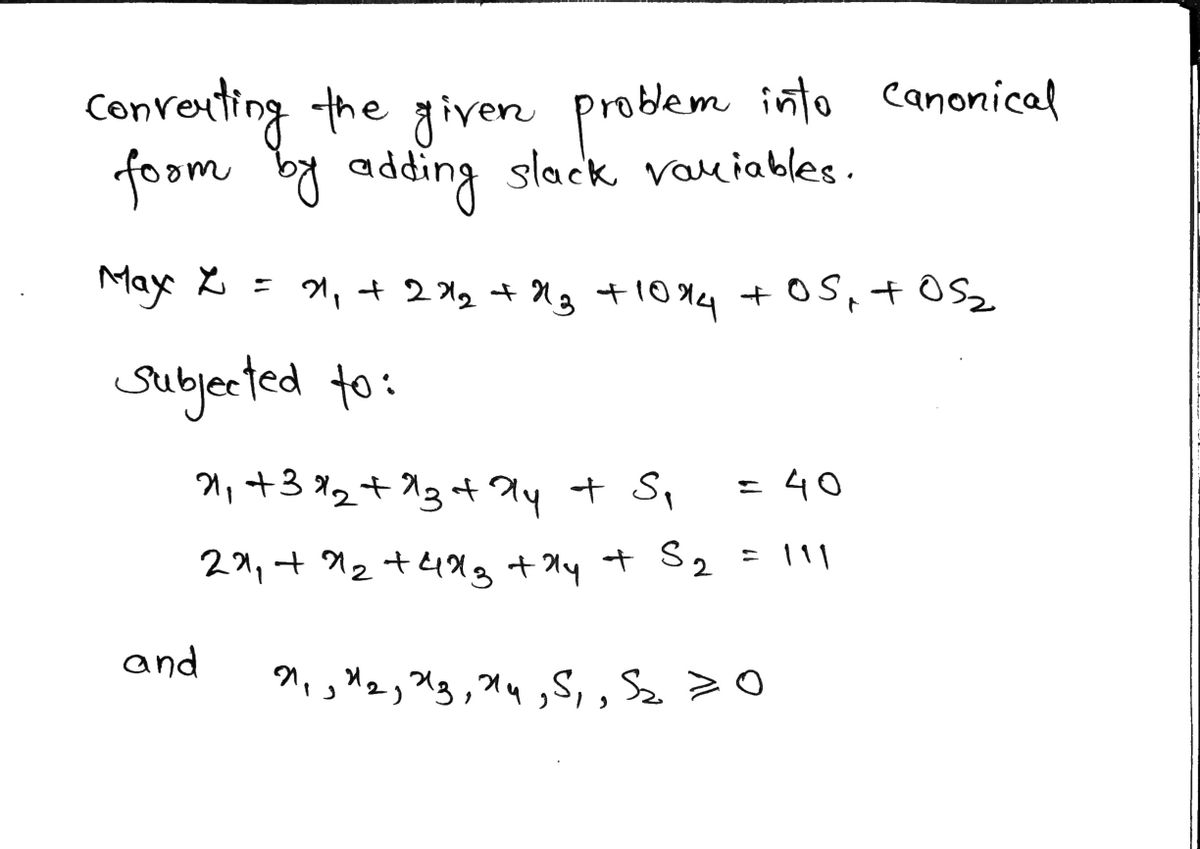 Converting the given problem into canonical
form by adding slack variables.
Max Z = x₁ + 2x₂ + x₃ + 10x₄ + 0S₁ + 0S₂
Subjected to:
x₁ + 3x₂ + x₃ + x₄ + S₁ = 40
2x₁ + x₂ + 4x₃ + x₄ + S₂ = 111
and x₁, x₂, x₃, x₄, S₁, S₂ ⩾ 0